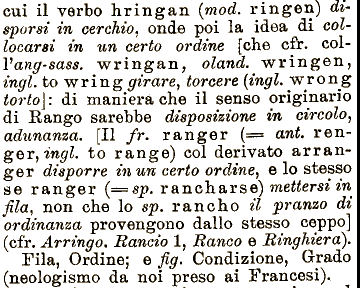 cui il verbo hringan (mod. ringen) di-
sporsi in cerchio, onde poi la idea di col-
locarsi in un certo ordine [che cfr. col-
l'ang-sass. wringan, oland. wringen,
ingl. to wring girare, torcere (ingl. wrong
torto]: di maniera che il senso originario
di Rango sarebbe disposizione in circolo,
adunanza. [Il fr. ranger (= ant. ren-
ger, ingl. to range) col derivato arran-
ger disporre in un certo ordine, e lo stesso
se ranger (= sp. rancharse) mettersi in
fila, non che lo sp. rancho il pranzo di
ordinanza provengono dallo stesso ceppo]
(cfr. Arringo. Rancio 1, Ranco e Ringhiera).
Fila, Ordine; e fig. Condizione, Grado
(neologismo da noi preso ai Francesi).